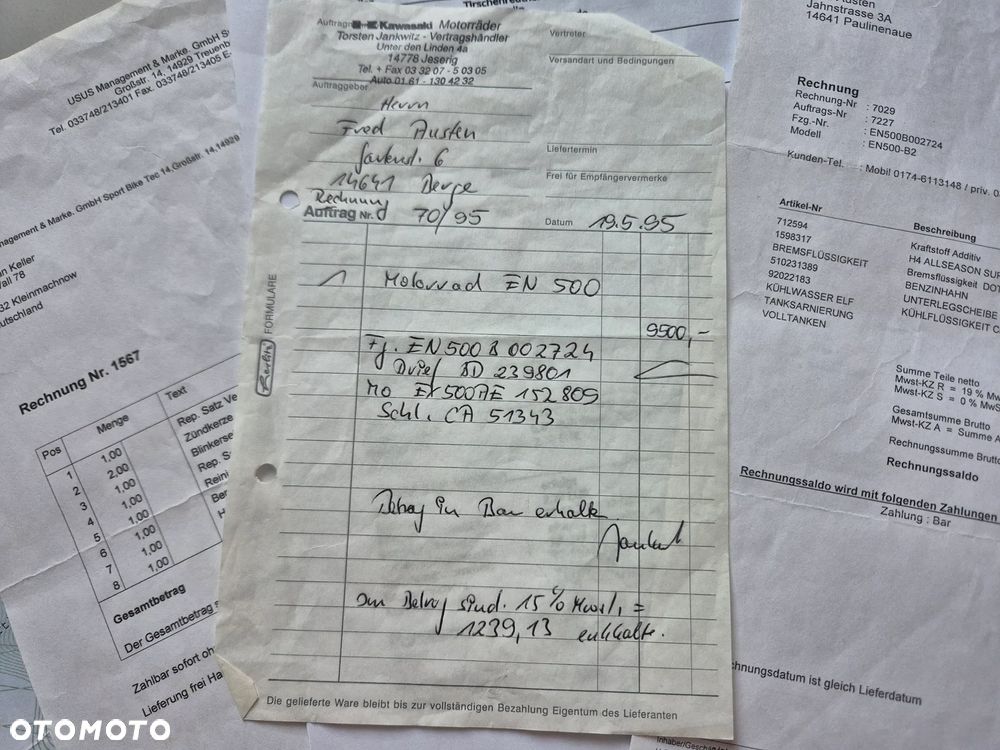 USUS Management & Marke. GmbH
Großstr. 14, 14929
Tel. 033748/213401 Fax. 033748/213405
nagement & Marke. GmbH Sport Bike Tec 14,Großstr. 14,14929
n Keller
all 78
32 Kleinmachnow
utschland
Rechnung Nr. 1567
Pos Menge Text
1 1,00 Rep. Satz
2 2,00 Zündkerze
3 1,00 Blinkerse
4 1,00 Rep.
5 1,00 Reini
6 1,00
7 1,00
8 1,00
Gesamtbetrag
Der Gesamtbetrag
Zahlbar sofort
Lieferung frei
Kawasaki Motorräder
Torsten Jankwitz - Vertragshändler
Unter den Linden 4a
14778 Jeserig
Tel. + Fax 03 32 07 - 5 03 05
Auto 01 61 - 130 42 32
Auftraggeber
Herrn
Fred Austen
14641 Berge
Rechnung
Auftrag Nr. 70/95
Vertreter
Versandart und Bedingungen
Liefertermin
Frei für Empfängervermerke
Datum 19.5.95
1 Motorrad EN 500
9500,–
Fg. EN500B 002724
Brief BD 239801
Mo EX500AE 152809
Schl. CA 51343
Betrag in Bar erhalten
Im Betrag sind 15% Mwst. =
1239,13 enthalten.
Die gelieferte Ware bleibt bis zur vollständigen Bezahlung Eigentum des Lieferanten
Berlitz FORMULARE
Jahnstrasse 3A
14641 Paulinenaue
Rechnung
Rechnung-Nr : 7029
Auftrags-Nr : 7227
Fzg.-Nr. : EN500B002724
Modell : EN500-B2
Kunden-Tel. : Mobil 0174-6113148 / priv.
Artikel-Nr Beschreibung
712594 Kraftstoff Additiv
1598317 H4 ALLSEASON
BREMSFLÜSSIGKEIT Bremsflüssigkeit
510231389 BENZINHAHN
92022183 UNTERLEGSCHEIBE
KÜHLWASSER ELF KÜHLFLÜSSIGKEIT
TANKSARNIERUNG
VOLLTANKEN
Summe Teile netto
Mwst-KZ R = 19 %
Mwst-KZ S = 0 %
Gesamtsumme Brutto
Mwst-KZ A = Summe
Rechnungssumme Brutto
Rechnungssaldo
Rechnungssaldo wird mit folgenden Zahlungen
Zahlung : Bar
chnungsdatum ist gleich Lieferdatum
OTOMOTO